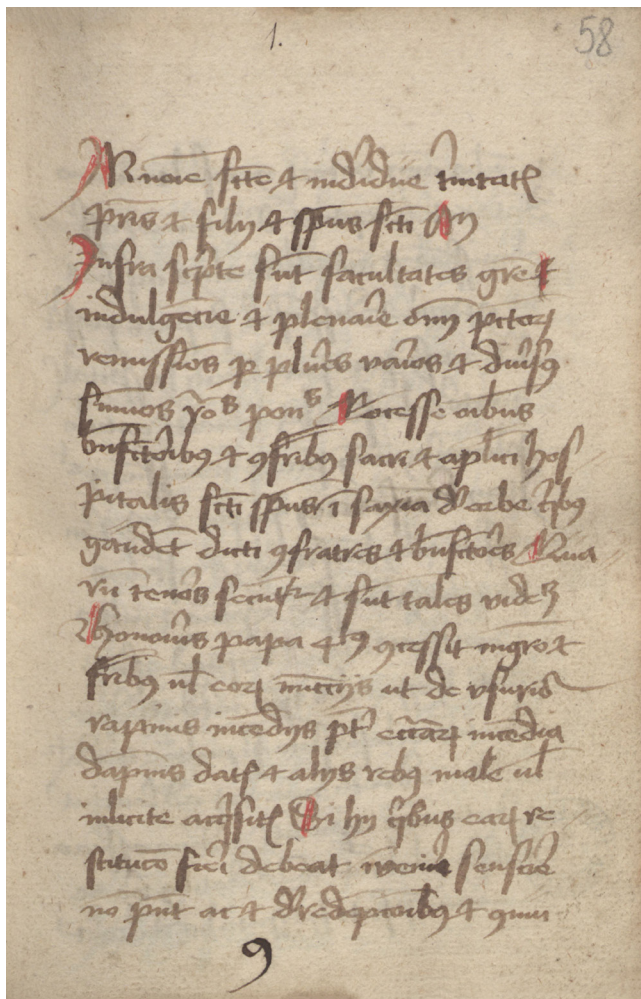 1.
58
In noie scte et indiuidue trinitatis
pris et filij et spus scti Am
Infra scpte sunt facultates gre et
indulgecie et plenarie oim pctor
remissiois per plures varios et diuersos
sumos ro s pon s cocesse oibus
bnfctoribus et cofribus sacri et aplici hos
pitalis scti spus i saxia de vrbe qibus
gaudet dicti cofratres et bnfctores Qua
ru tenores secutur et sunt tales videz
Honorius papa cocessit mgro et
fribus vl eor nuccijs ut de vsuris
rapinis incedijs pt eccar incedia
dapnis datis et alijs rebus male vl
inlicite acqsitis Si hij qibus ear re
stituco fieri debeat inueniri
no pnt ac et de redepcoibus et
9